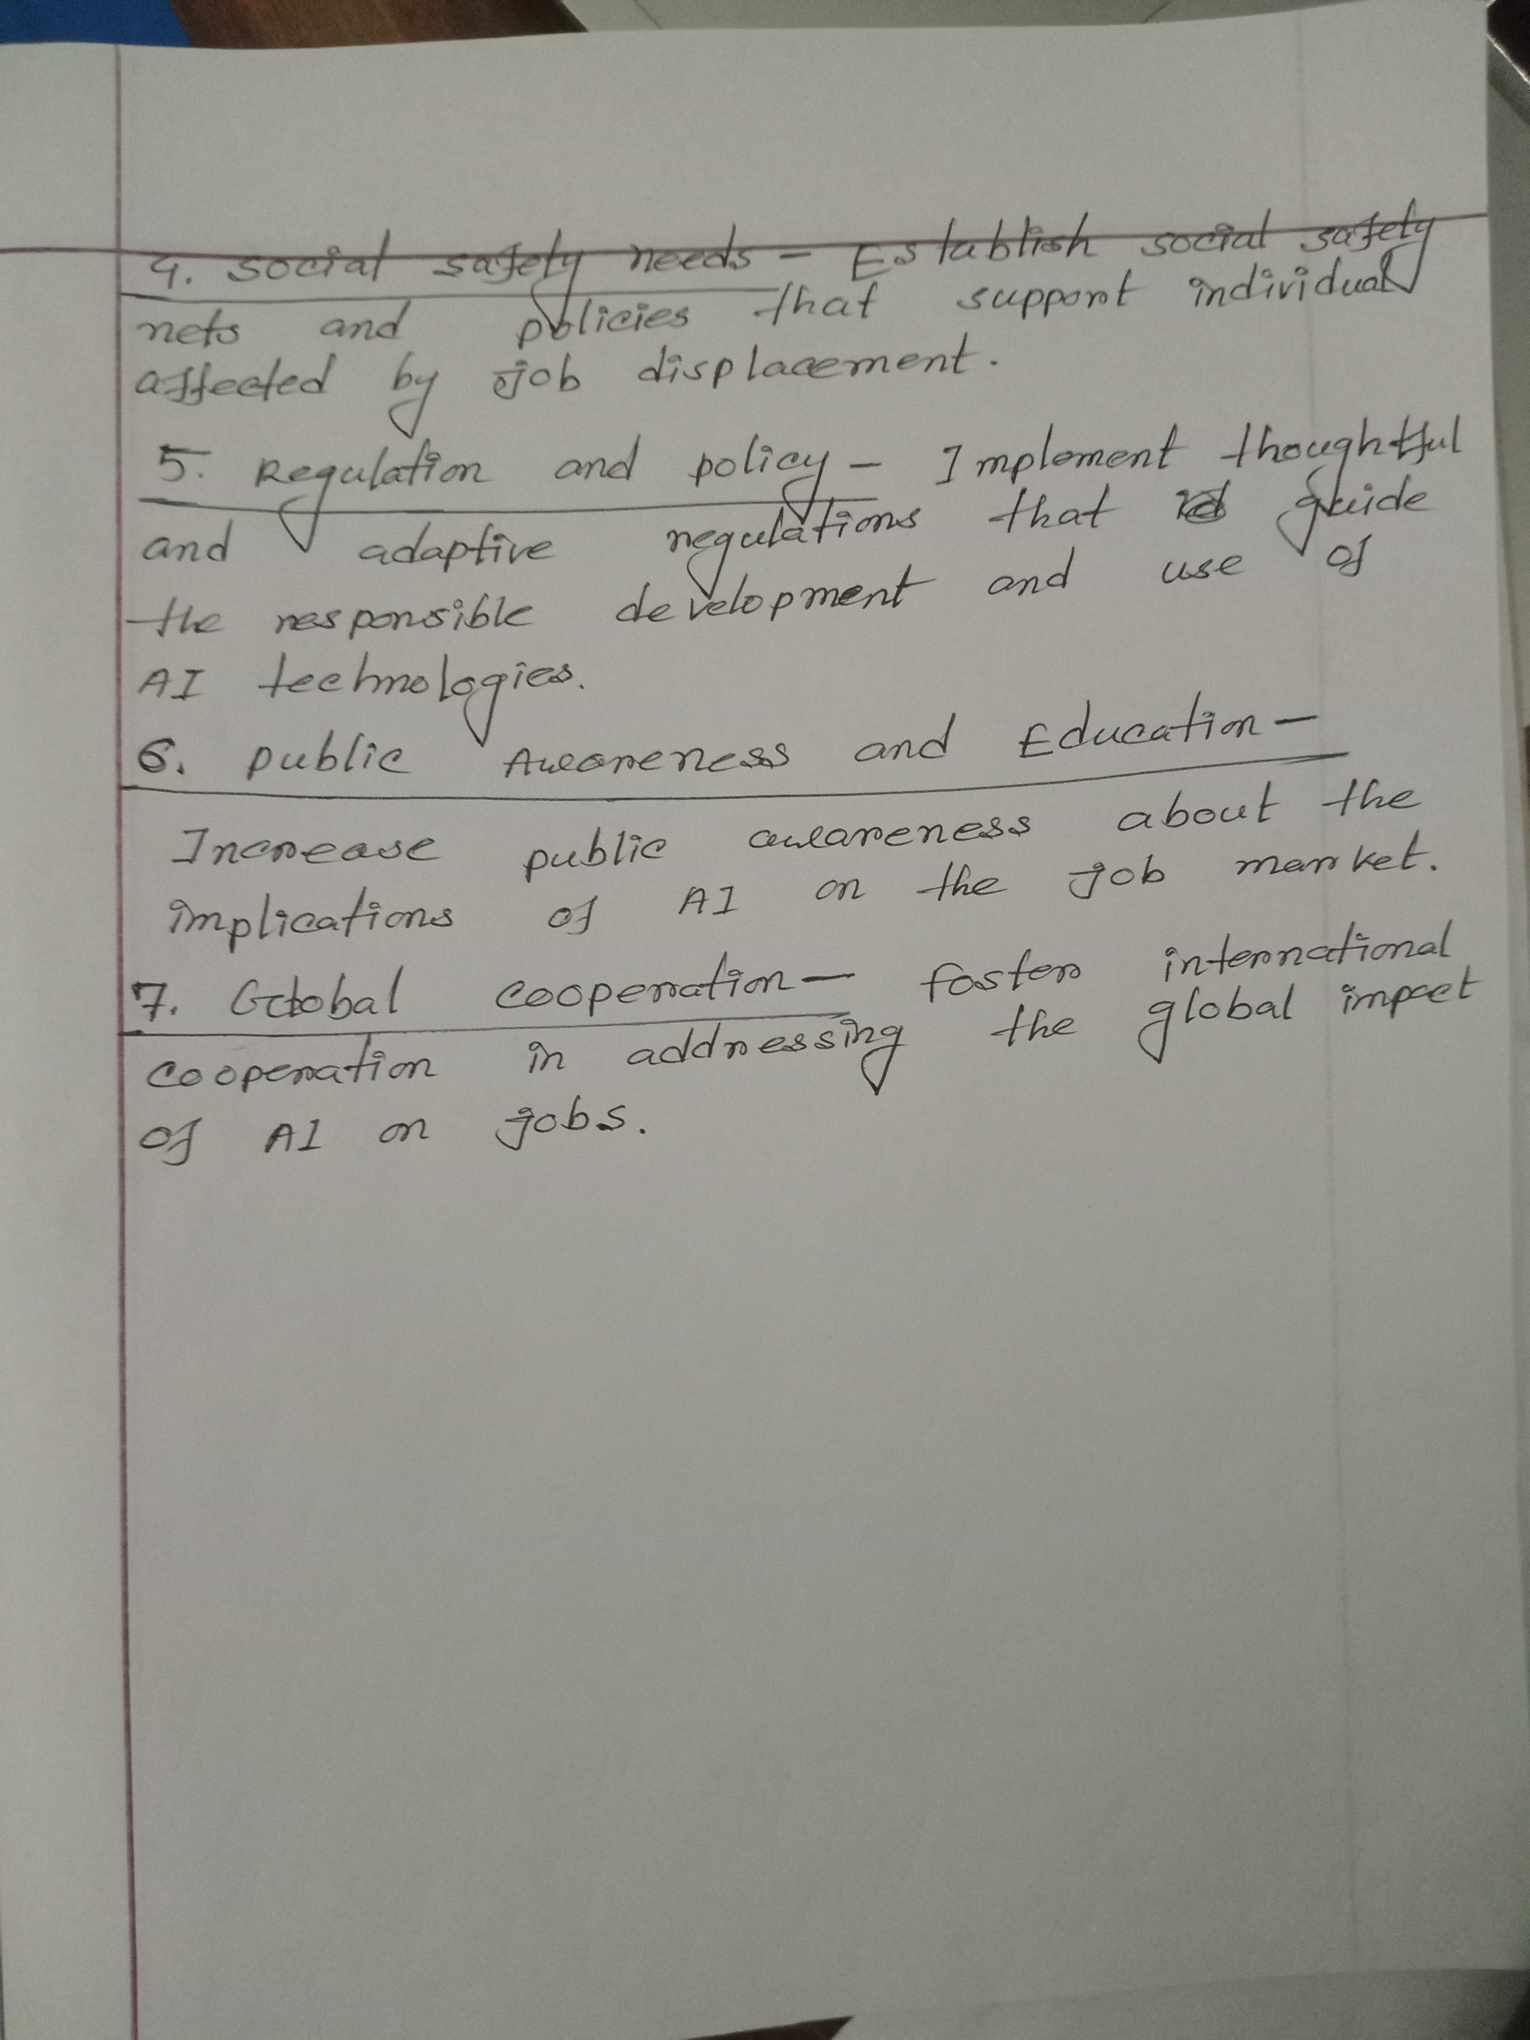 4. social safety needs - Establish social safety
nets and policies that support individual
affected by job displacement.
5. Regulation and policy - Implement thoughtful
and adaptive regulations that guide
the responsible development and use of
AI technologies.
6. public Awareness and Education -
Increase public awareness about the
implications of AI on the job market.
7. Global cooperation - foster international
cooperation in addressing the global impact
of AI on jobs.